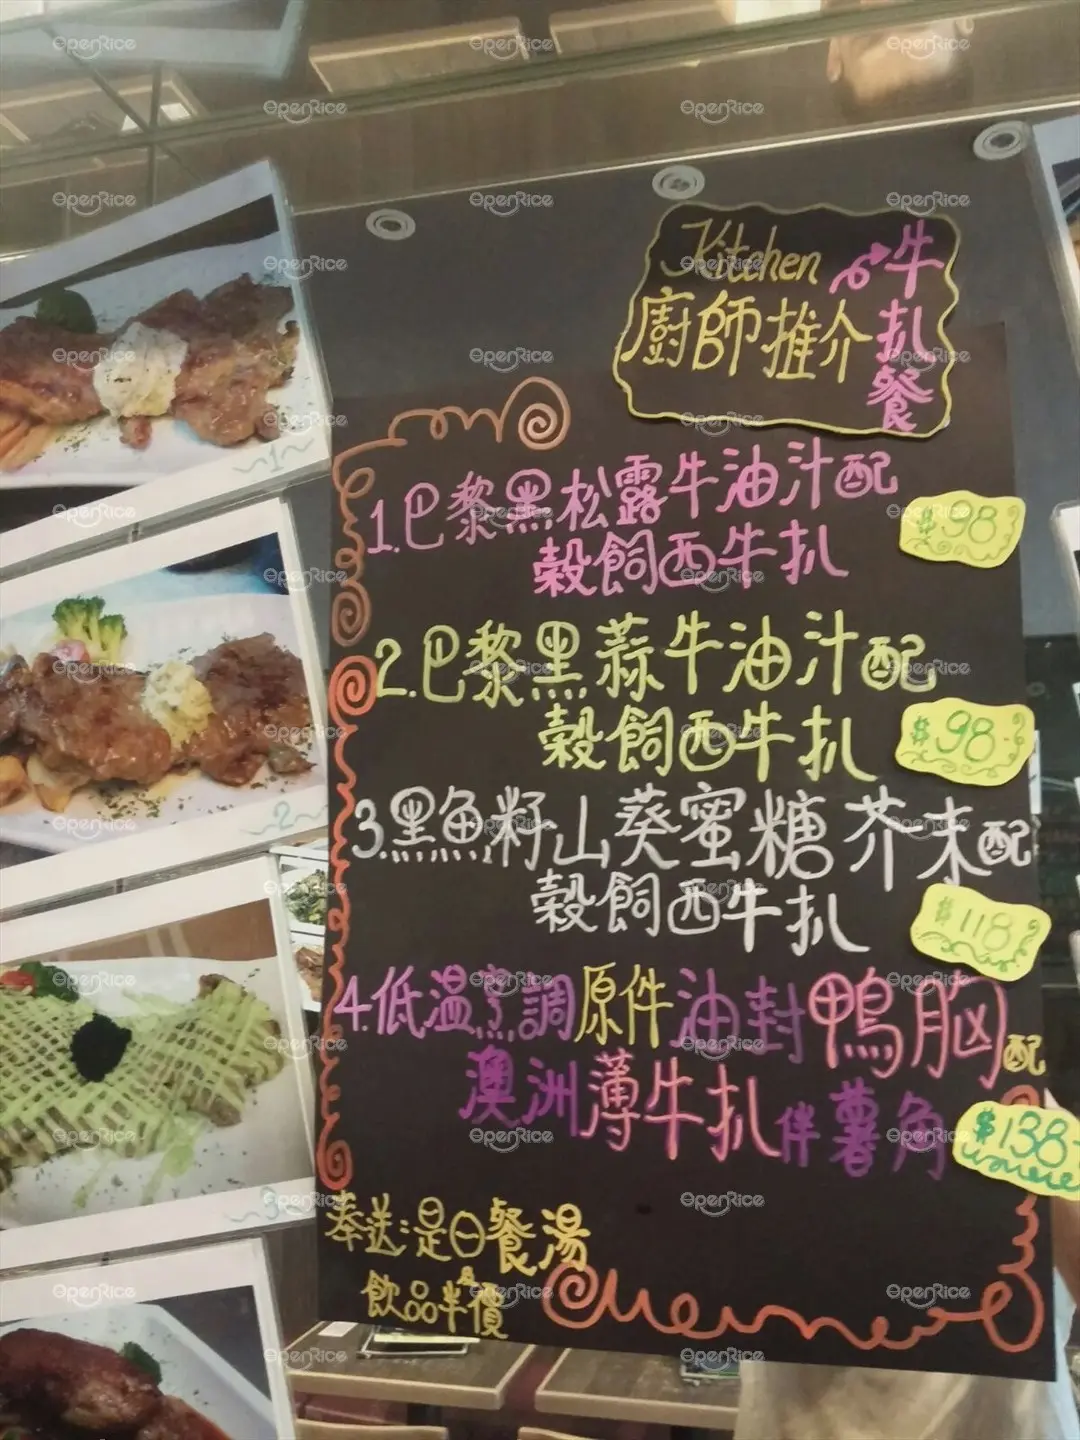 Kitchen
廚師推介
牛扒餐
1.巴黎黑松露牛油汁配
穀飼西牛扒
$98
2.巴黎黑蒜牛油汁配
穀飼西牛扒
$98
3.黑魚籽山葵蜜糖芥末配
穀飼西牛扒
$118
4.低溫烹調原件油封鴨胸配
澳洲薄牛扒伴薯角
$138
奉送是日餐湯
及
飲品半價
1
2
3
OpenRice